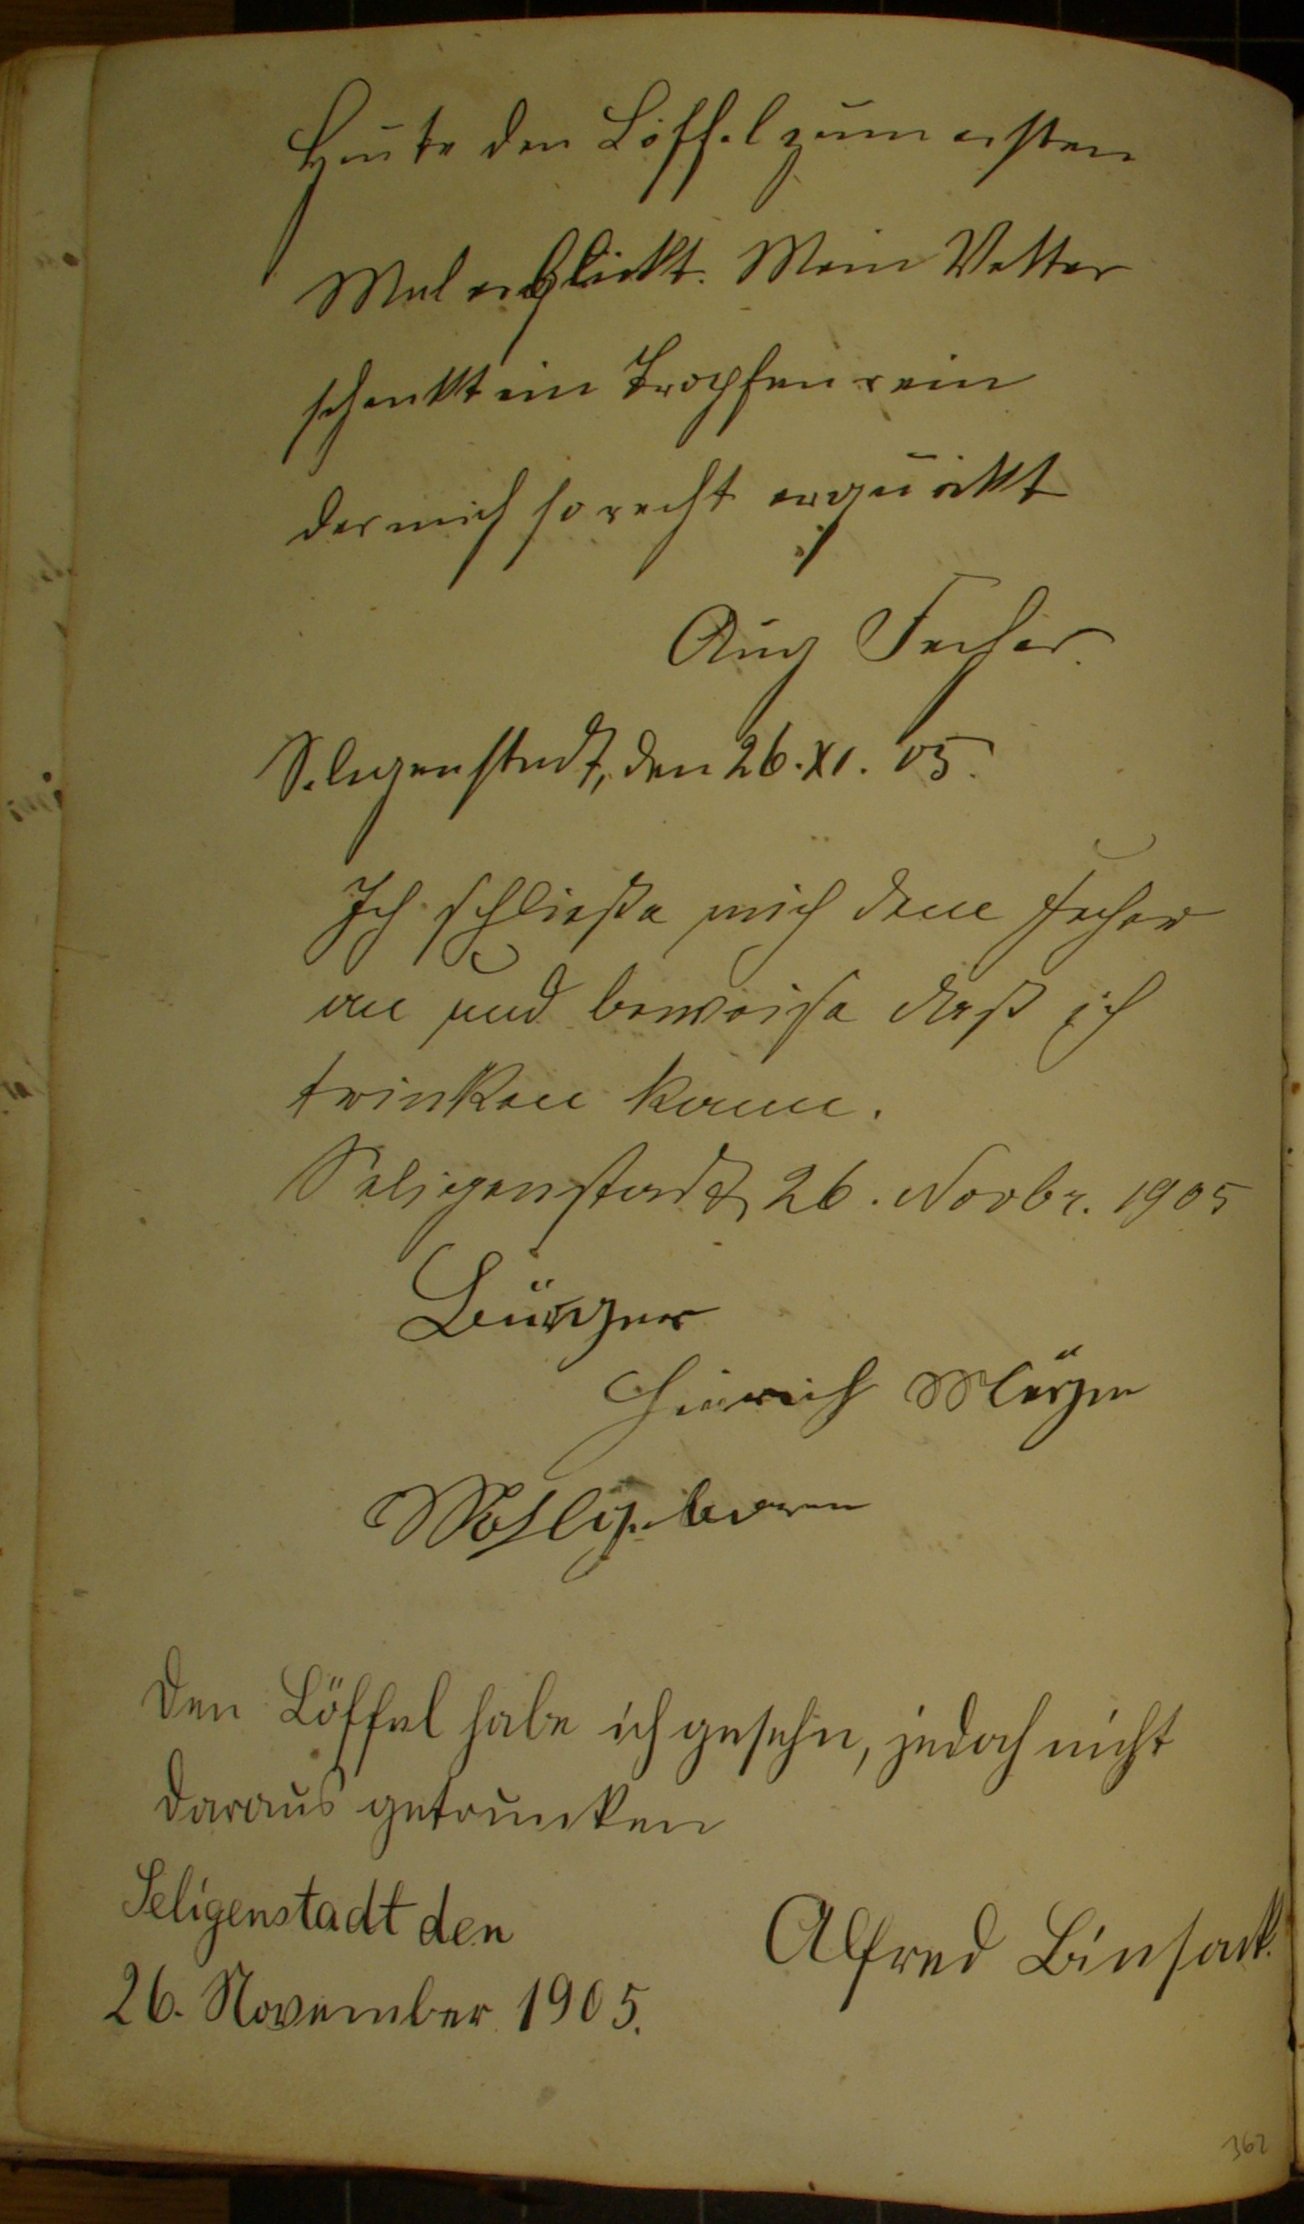 Heute den Löffel zum ersten
Mal erblickt. Mein Vetter
schenkt ein Tropfen rein
der mich so recht erquickt
Aug Fecher.
Seligenstadt, den 26. XI. 05.
Ich schließe mich dem Fecher
an und beweise daß ich
trinken kann.
Seligenstadt, 26. Novbr. 1905
Bürger
Wohlgeboren
Den Löffel habe ich gesehn, jedoch nicht
daraus getrunken
Seligenstadt den
26. November 1905.
Alfred Binsack.
362